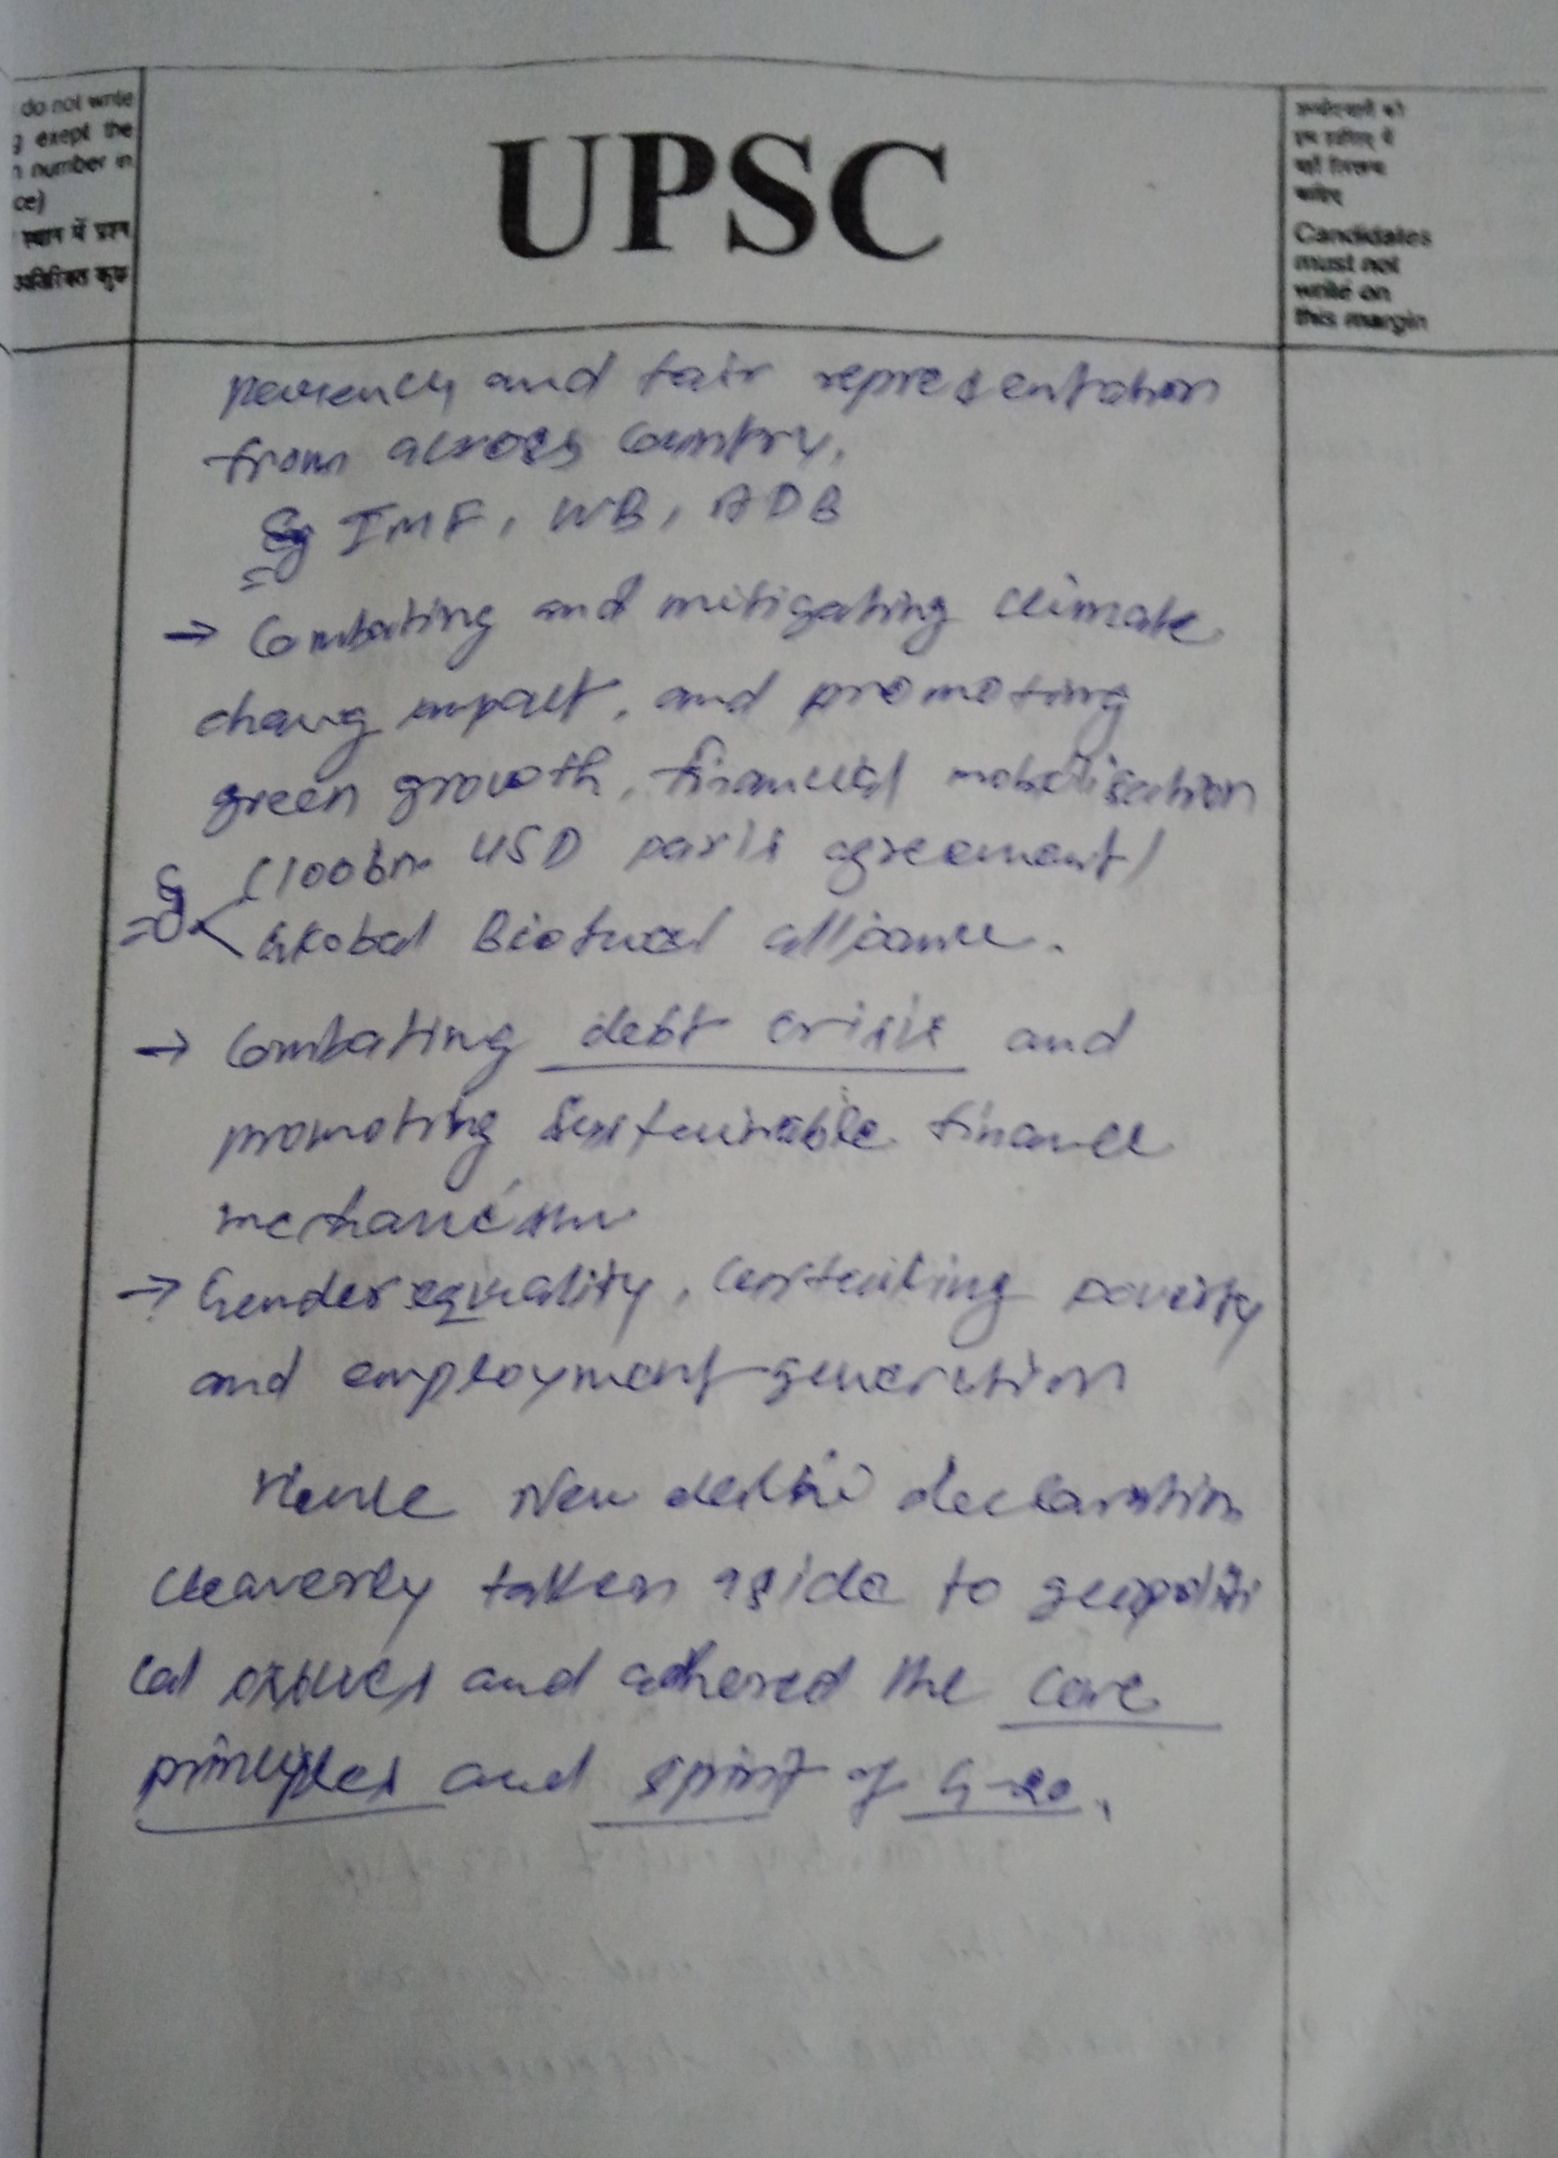 do not write
exept the
number in
ce)
स्थान में प्रश्न
अतिरिक्त कुछ
UPSC
उम्मीदवारों को
इस हाशिए में
नहीं लिखना
चाहिए
Candidates
must not
write on
this margin
and fair representation
from across country.
Eg IMF, WB, ADB
→ Combating and mitigating climate
chang impact, and promoting
green growth, financial mobilisation
Eg (100bn USD paris agreement)
Global Biofuel alliance.
→ Combating debt crisis and
promoting Sustainable finance
mechanism
→ Gender equality, poverty
and employment generation
Hence New delhi declaration
cleaverly taken aside to geopoliti
cal issues and adhered the core
principles and spirit of G-20.